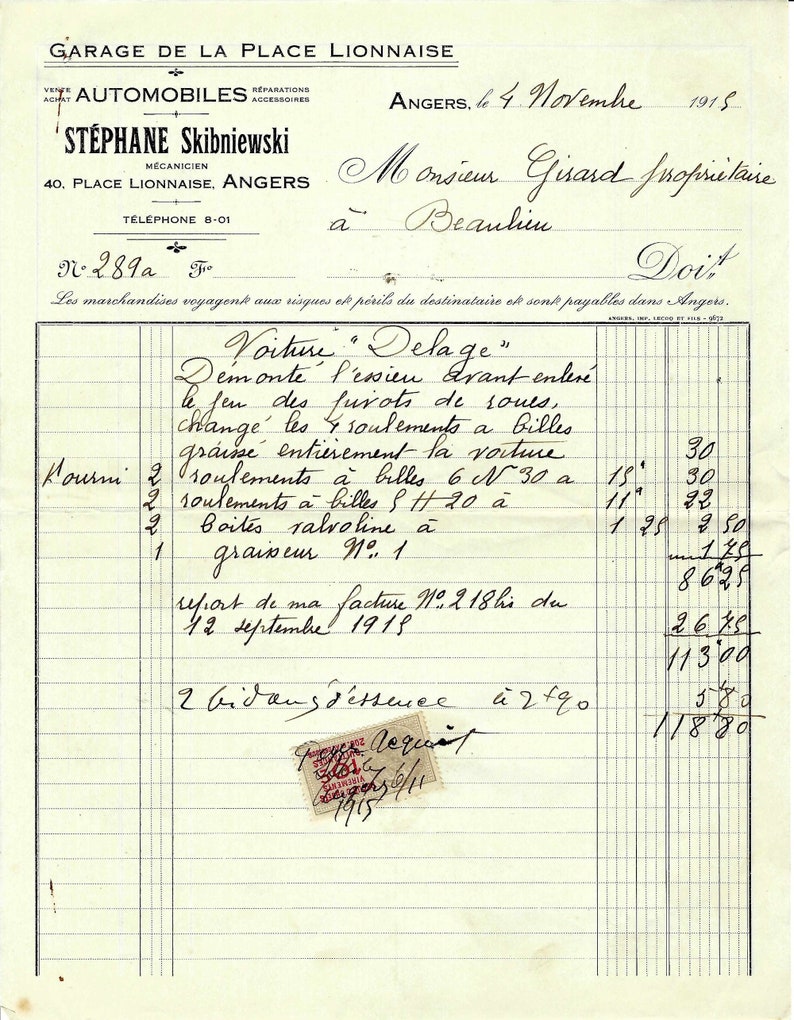 GARAGE DE LA PLACE LIONNAISE
VENTE ACHAT AUTOMOBILES RÉPARATIONS ACCESSOIRES
STÉPHANE Skibniewski
MÉCANICIEN
40, PLACE LIONNAISE, ANGERS
TÉLÉPHONE 8-01
ANGERS, le 4 Novembre 1915
Monsieur Girard propriétaire
à Beaulieu
Nº 289a Fº
Doit
Les marchandises voyagent aux risques et périls du destinataire et sont payables dans Angers.
ANGERS, IMP. LECOQ ET FILS - 9672
Voiture "Delage"
Démonté l'essieu avant enlevé
le jeu des pivots de roues,
changé les 4 roulements a billes
graissé entièrement la voiture 30
Fourni 2 roulements à billes 6 N 30 a 15 30
2 roulements à billes 5 H 20 à 11 22
2 boites valvoline à 1 25 2 50
1 graisseur Nº 1 1 75
86 25
report de ma facture Nº 218bis du
12 septembre 1915 26 75
113 00
2 bidons d'essence à 2f90 5f80
118f80
Pour Acquit
Angers 6/11
1915